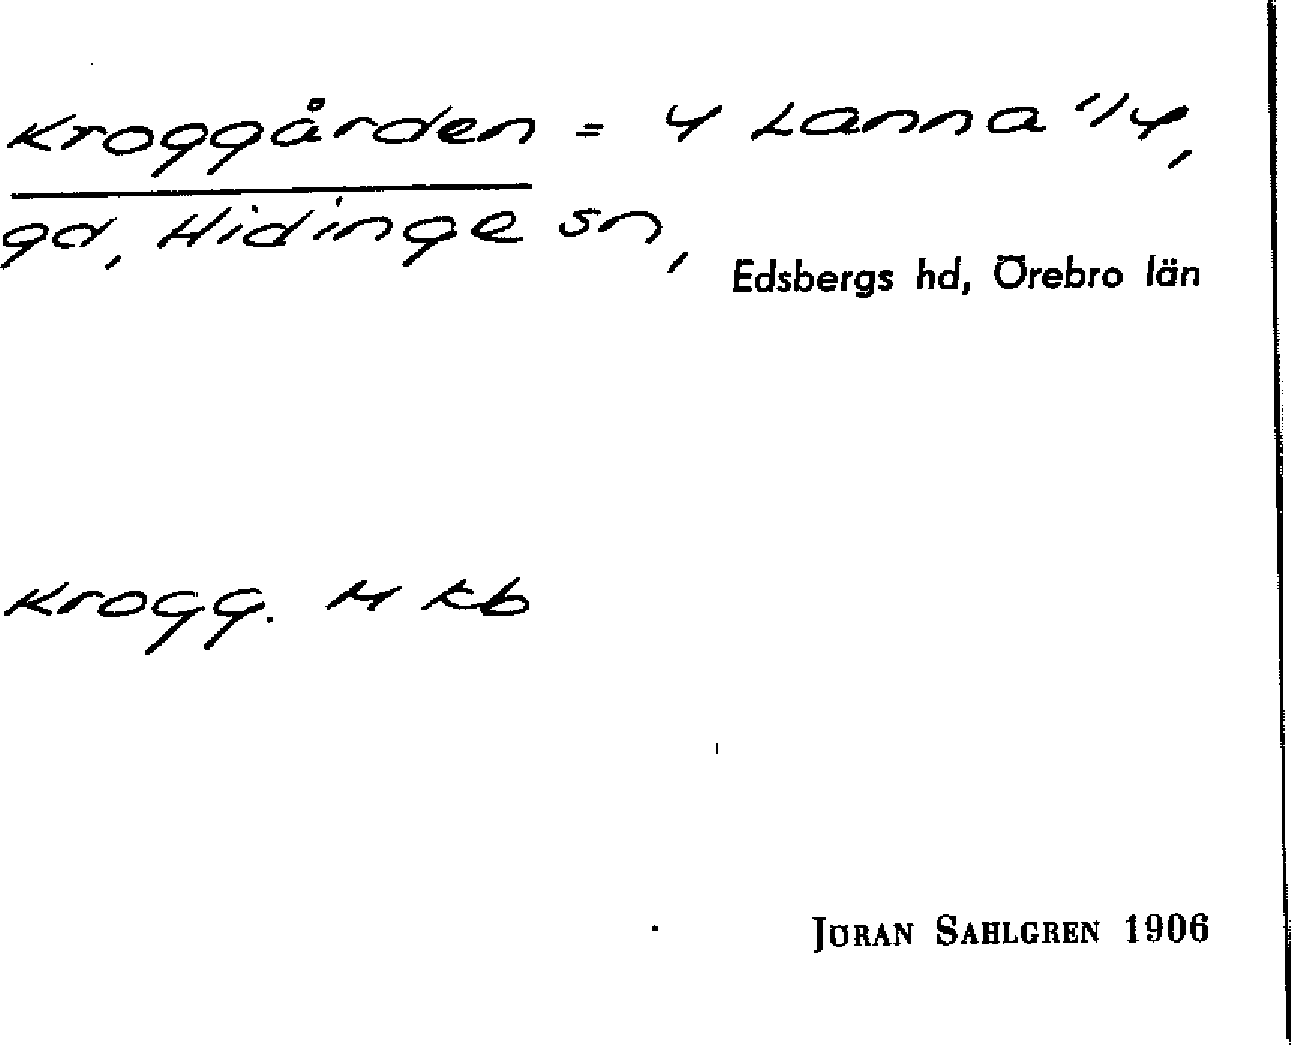 Kroggården = 4 Lanna 1/4,
gd, Hidinge sn,
Edsbergs hd, Örebro län
Krogg. M kb
JÖRAN SAHLGREN 1906